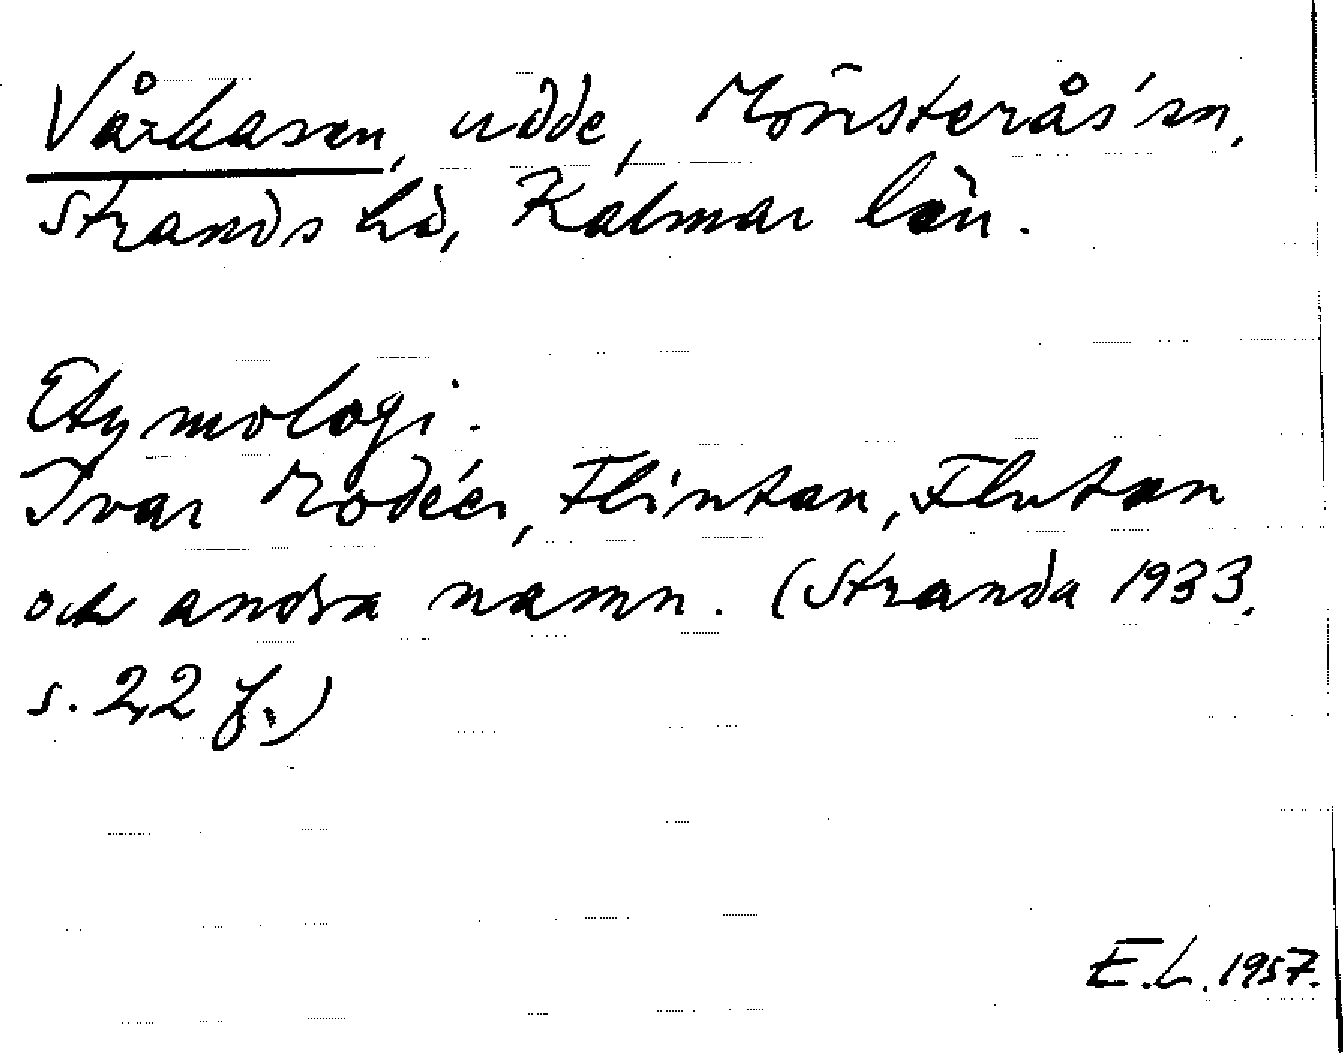 Vårkasen, udde, Mönsterås sn,
Stranda hd, Kalmar län.
Etymologi.
Ivar Modéer, Flintan, Flutan
och andra namn. (Stranda 1933.
s. 22 f.)
E.L. 1957.